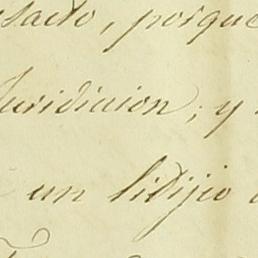 sacto, porque
Juridicion; y
un lidijio